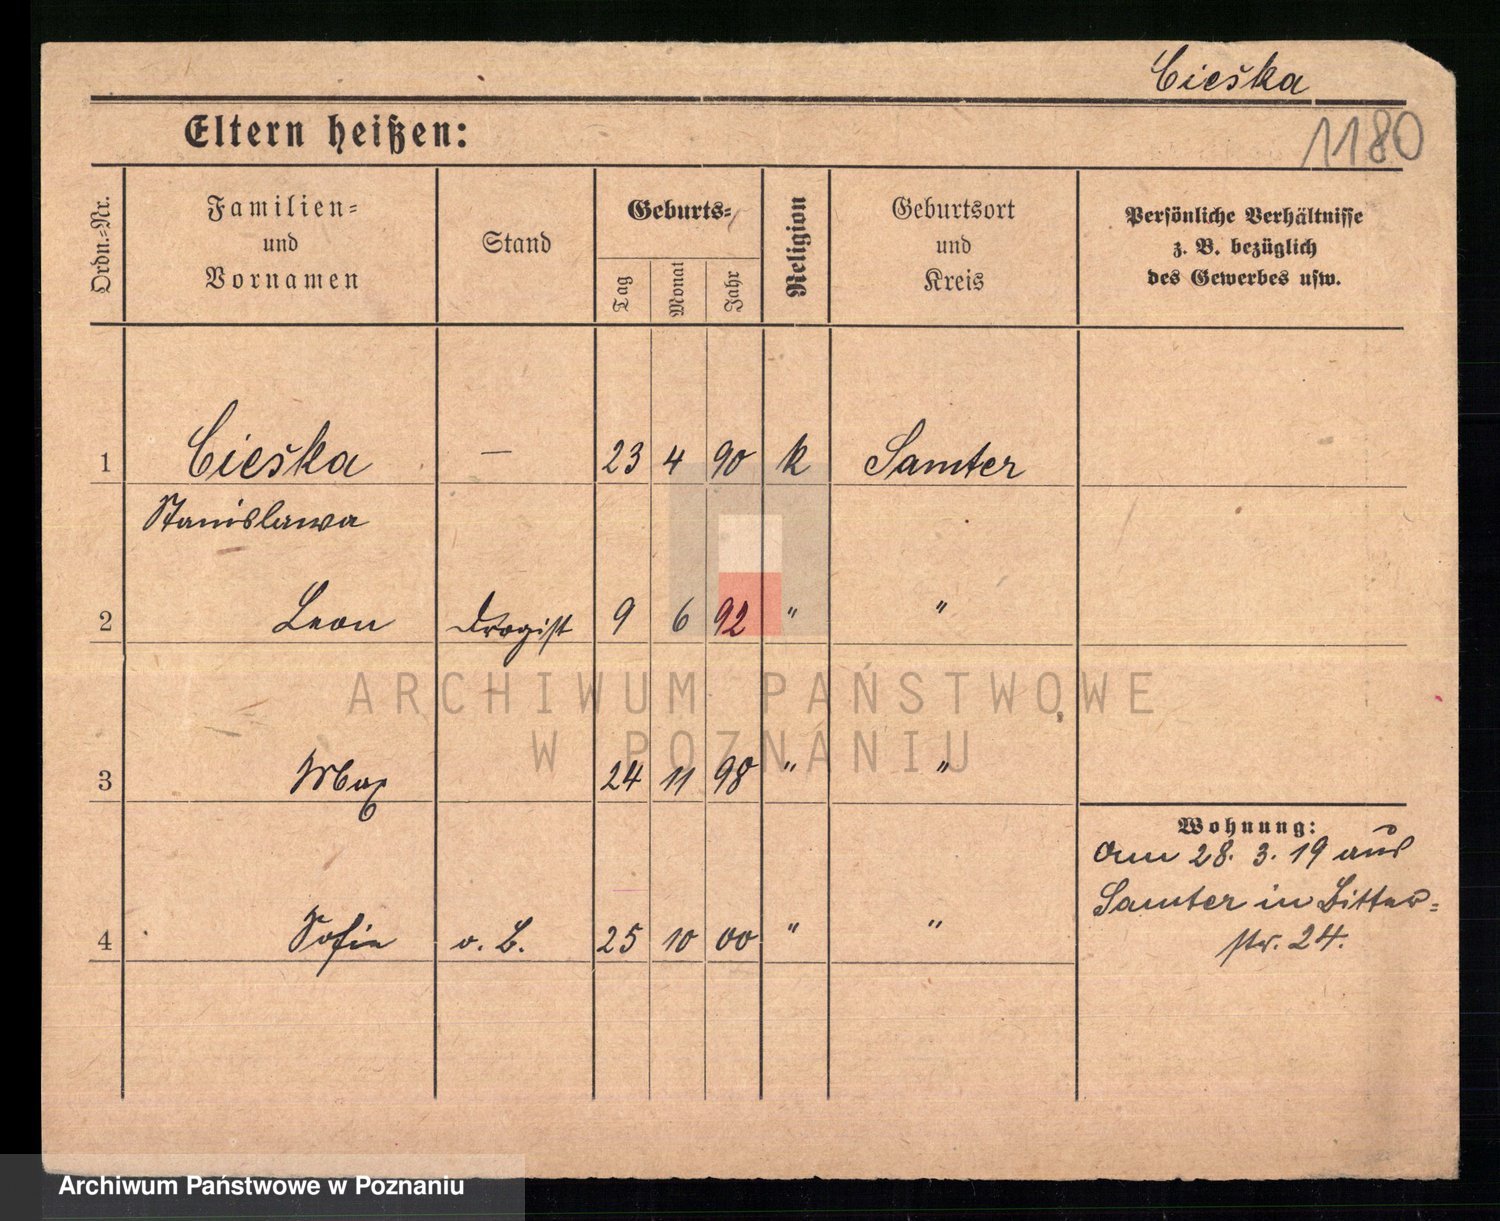 Cieśka
Eltern heißen:
1180
Ordn.-Nr.
Familien-
und
Vornamen
Stand
Geburts-
Tag
Monat
Jahr
Religion
Geburtsort
und
Kreis
Persönliche Verhältnisse
z. B. bezüglich
des Gewerbes usw.
1 Cieśka — 23 4 90 k Samter
Stanislawa
2 Leon Drogist 9 6 92 " "
ARCHIWUM PAŃSTWOWE
W POZNANIU
3 Max 24 11 98 " "
Wohnung:
Am 28. 3. 19 aus
Samter in Ritter-
str. 24.
4 Sofie o. B. 25 10 00 " "
Archiwum Państwowe w Poznaniu